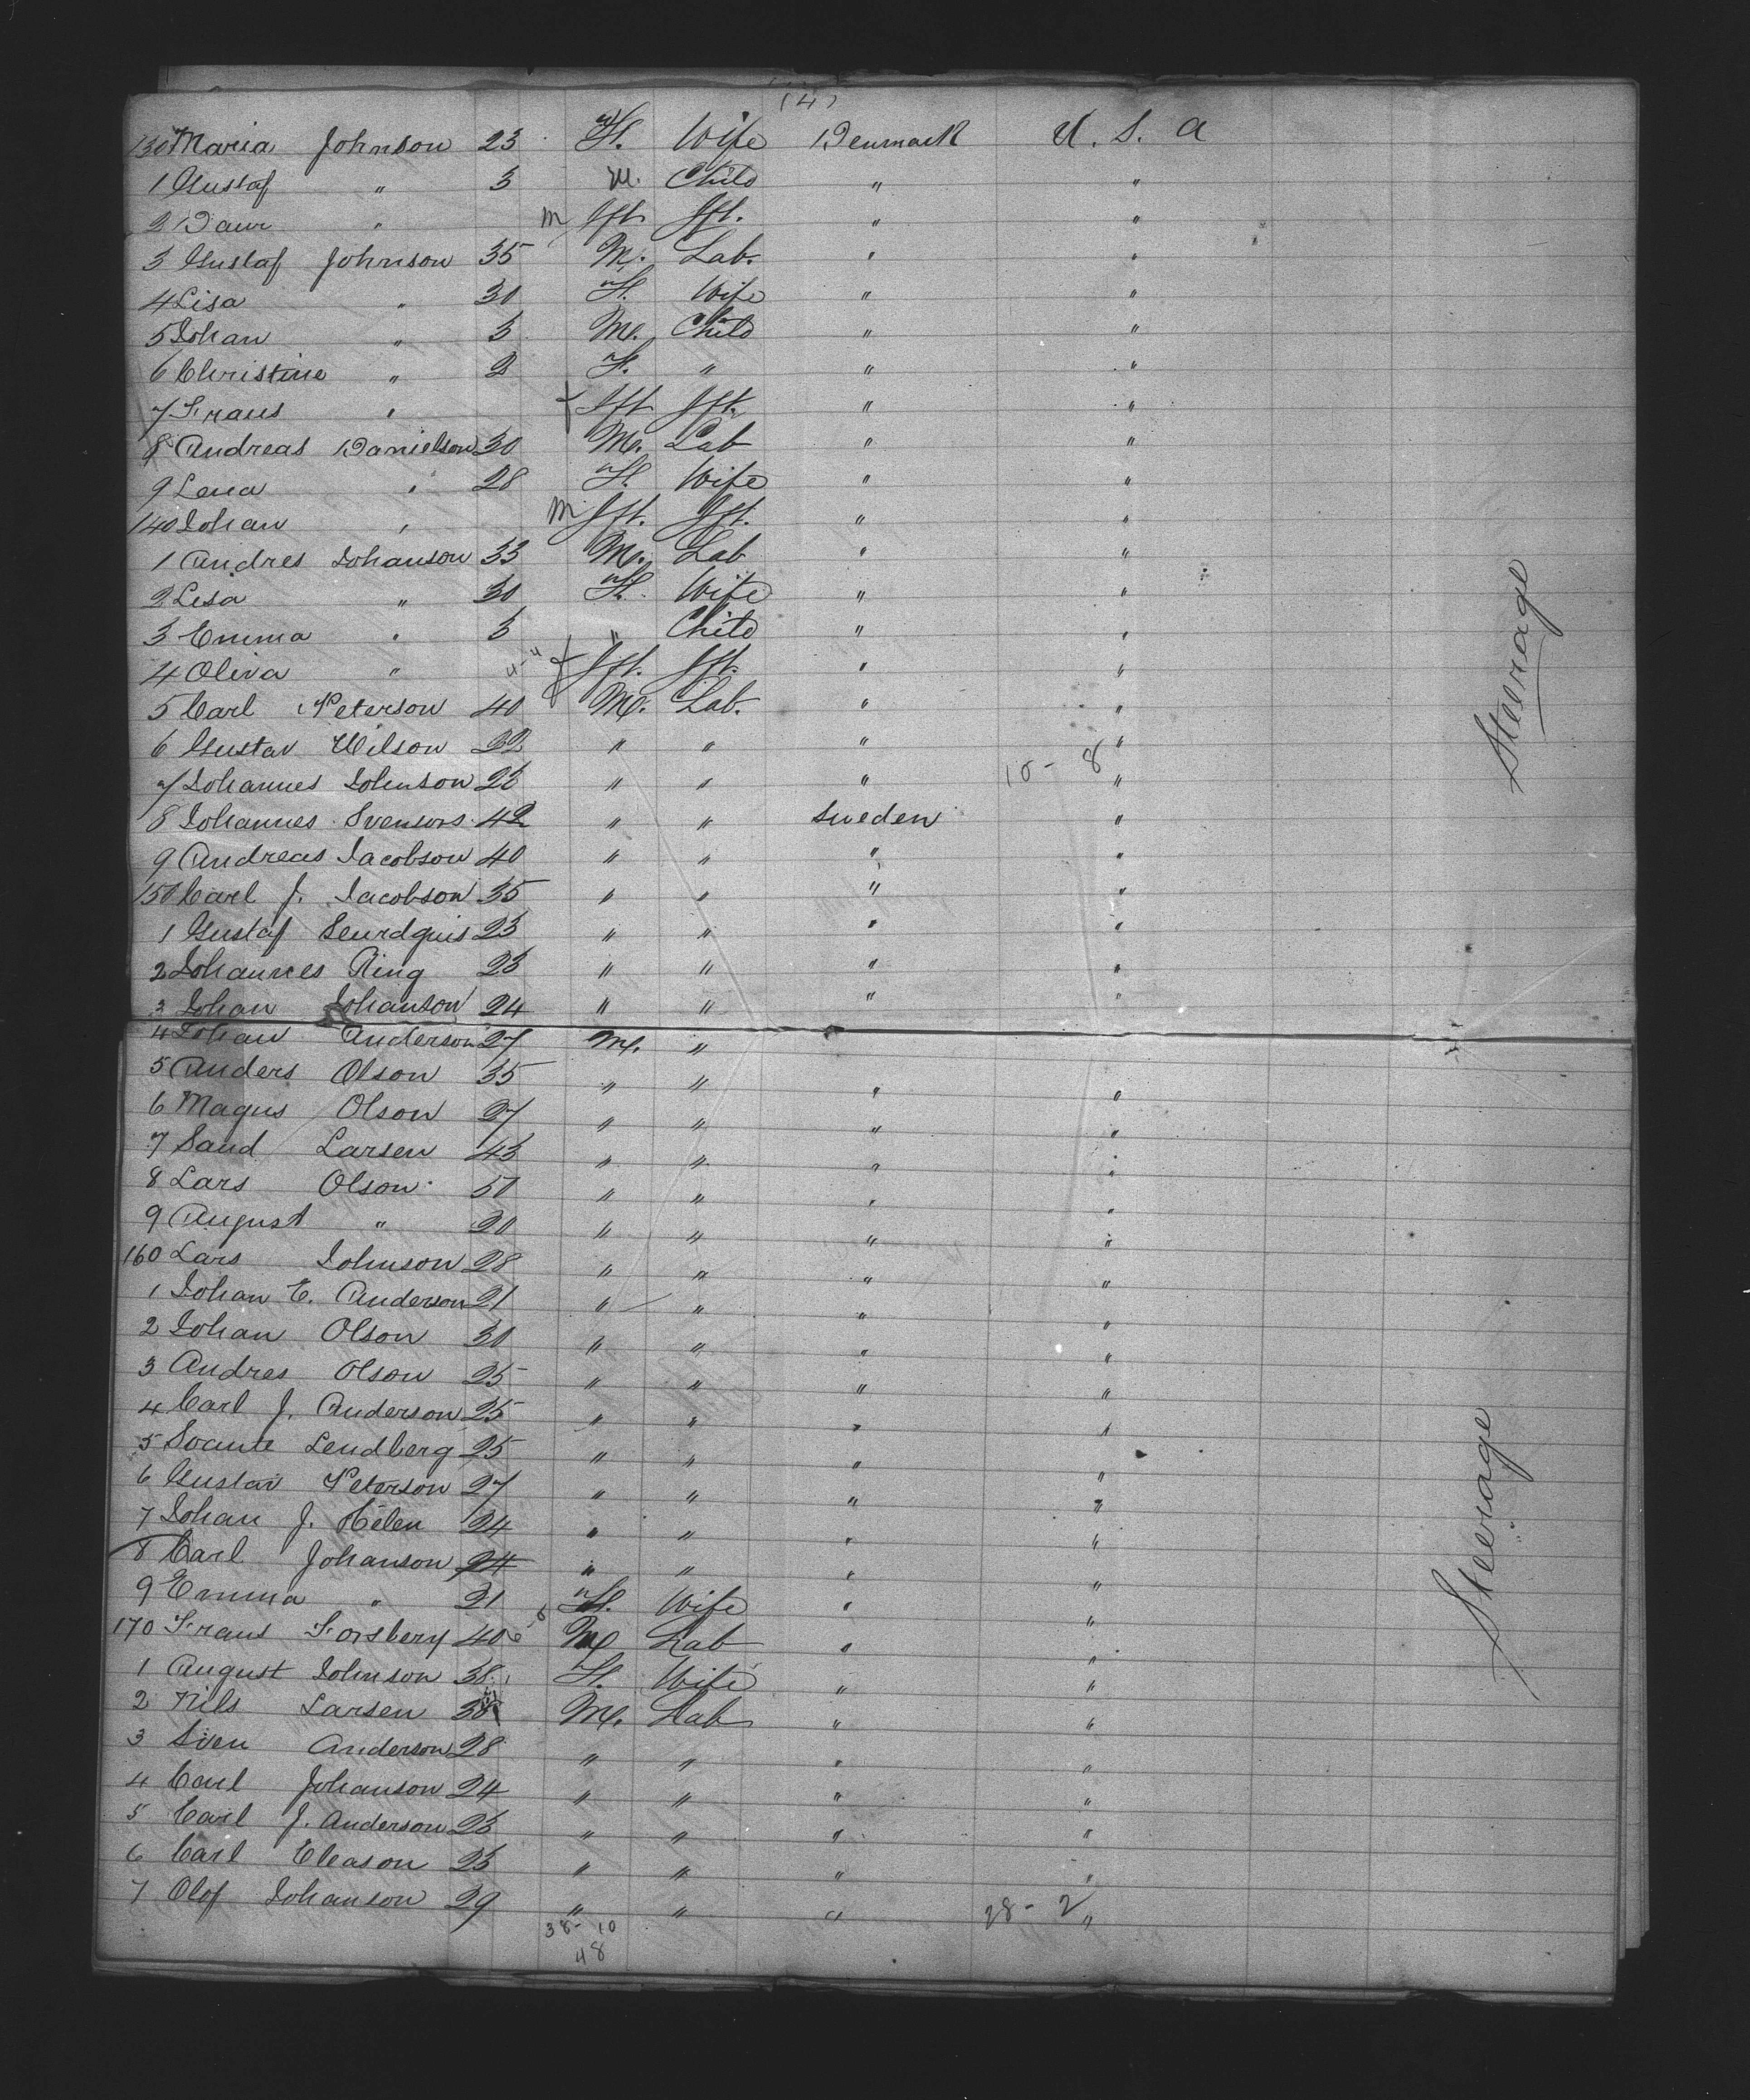 (4)
130 Maria Johnson 23 F. Wife Denmark U. S. A
1 Gustaf " 3 M. Child " "
2 " m Ift Ift. " "
3 Gustaf Johnson 35 M. Lab. " "
4 Lisa " 30 F. Wife " "
5 Johan " 3 M. Child " "
6 Christine " 2 F. " " "
7 Frans " f Ift Ift. " "
8 Andreas Danielson 30 M. Lab " "
9 Lena " 28 F. Wife " "
140 Johan " m Ift. Ift. " "
1 Andres Johanson 33 M. Lab " "
2 Lisa " 30 F. Wife " "
3 Emma " 3 " Child " "
4 Oliva " 4-4 f Ift. Ift. " "
5 Carl Peterson 40 M. Lab. " "
6 Gustav Wilson 22 " " " "
7 Johannes Johnson 23 " " " 10 - 8 "
8 Johannes Svensors 42 " " Sweden "
9 Andreas Jacobson 40 " " " "
150 Carl J. Jacobson 35 " " " "
1 Gustaf 23 " " " "
2 Johannes Ring 23 " " " "
3 Johan Johanson 24 " " " "
4 Johan Anderson 27 M. "
5 Anders Olson 35 " " " "
6 Magus Olson 27 " " " "
7 Sand Larsen 43 " " " "
8 Lars Olson 50 " " " "
9 August " 20 " " " "
160 Lars Johnson 28 " " " "
1 Johan E. Anderson 21 " " " "
2 Johan Olson 30 " " " "
3 Andres Olson 25 " " " "
4 Carl J. Anderson 25 " " " "
5 Svante Lendberg 25 " " " "
6 Gustav Peterson 27 " " " "
7 Johan J. Helen 24 " " " "
8 Carl Johanson 24 " " " "
9 Emma " 21 F. Wife " "
170 Frans Forsberg 40 M Lab " "
1 August Johnson 38 F. Wife " "
2 Nils Larsen M. Lab " "
3 Sven Anderson 28 " " " "
4 Carl Johanson 24 " " " "
5 Carl J. Anderson 23 " " " "
6 Carl Eleason 23 " " " "
7 Olof Johanson 29 " " " 28 - 2 "
38 - 10
48
Steerage
Steerage